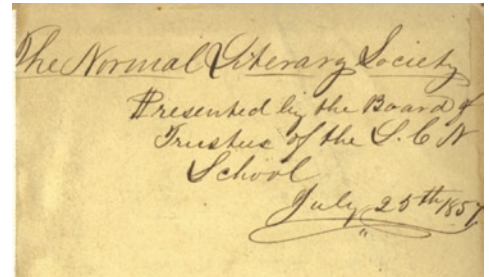 The Normal Literary Society
Presented by the Board of
Trustees of the L. C N
School
July 25th 1857